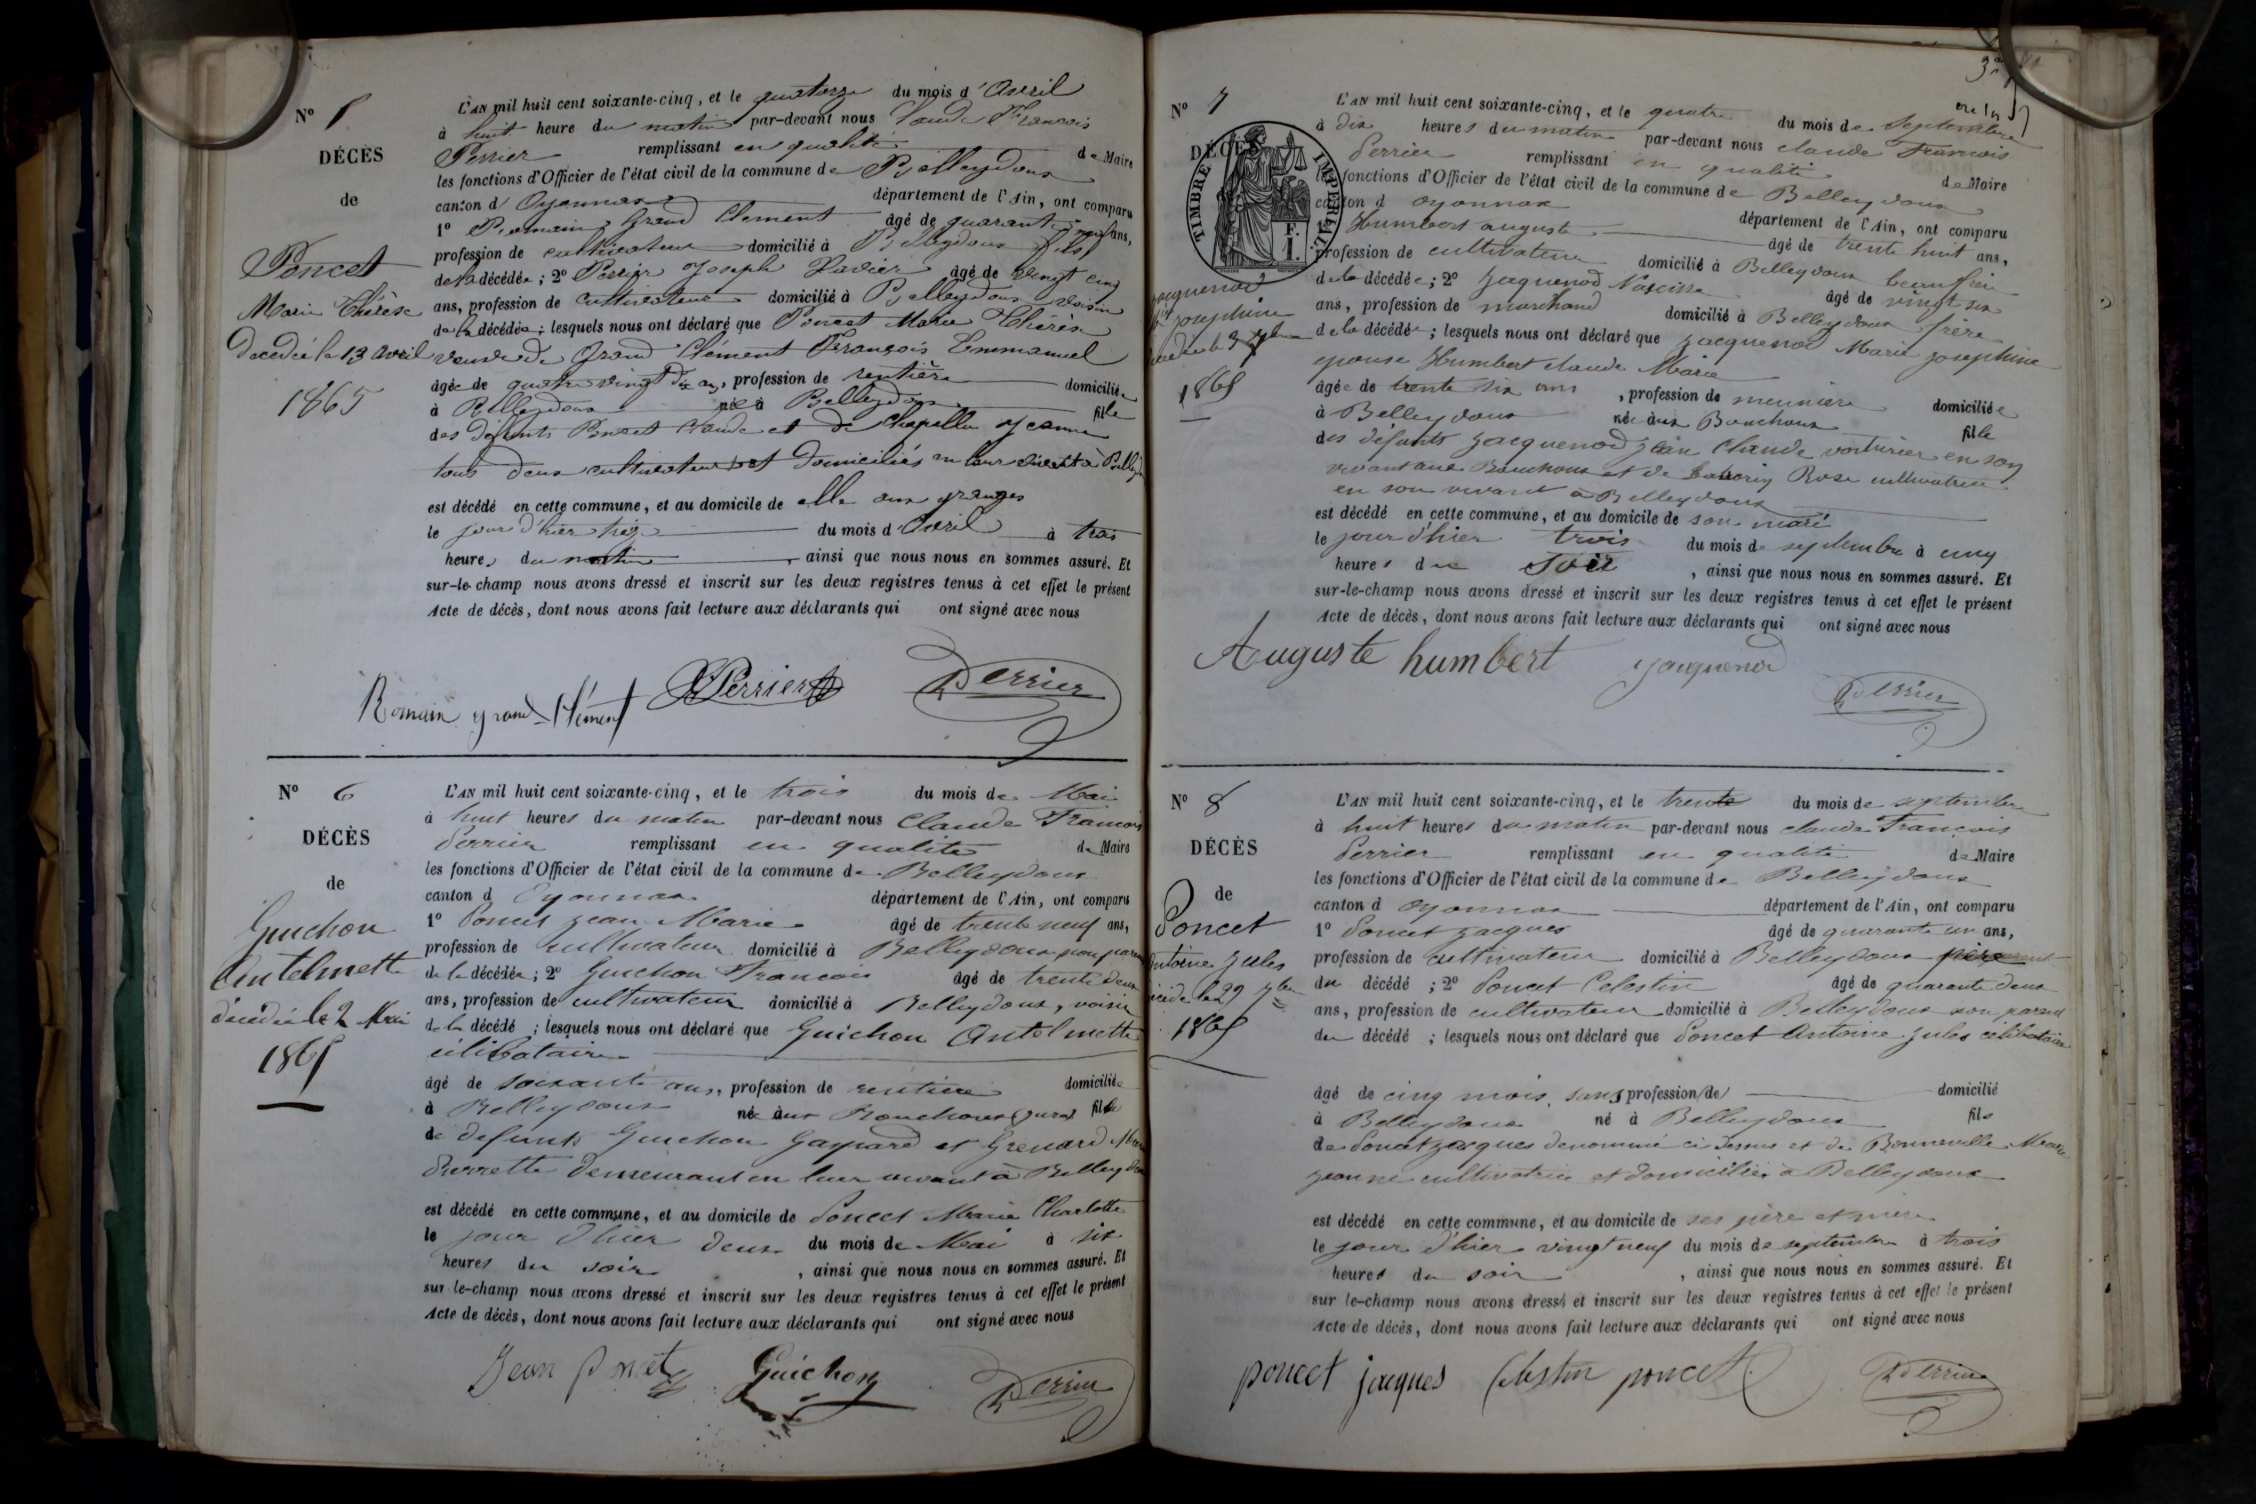 N° 5
DÉCÈS
de
Poncet
Marie Thérèse
Décédée le 13 avril
1865
L'AN mil huit cent soixante-cinq, et le quatorze du mois d'Avril
à huit heure du matin par-devant nous Claude François
Perrier remplissant en qualité de Maire
les fonctions d'Officier de l'état civil de la commune de Belleydoux
canton d'Oyonnax département de l'Ain, ont comparu
1° Romain Grand Clement âgé de quarante neuf ans,
profession de cultivateur domicilié à Belleydoux fils,
de la décédée; 2° Perrier Joseph Xavier âgé de vingt cinq
ans, profession de cultivateur domicilié à Belleydoux voisin
de la décédée; lesquels nous ont déclaré que Poncet Marie Thérèse
veuve de Grand Clément François Emmanuel
âgée de quatre vingt dix ans, profession de rentière domiciliée
à Belleydoux née à Belleydoux fille
des défunts Poncet Claude et de Chapellu Jeanne
tous deux cultivateurs et domiciliés en leur vivant à Belleydoux
est décédé en cette commune, et au domicile de elle aux granges
le jour d'hier treize du mois d'Avril à trois
heures du matin, ainsi que nous nous en sommes assuré. Et
sur-le-champ nous avons dressé et inscrit sur les deux registres tenus à cet effet le présent
Acte de décès, dont nous avons fait lecture aux déclarants qui ont signé avec nous
Romain grand-Clément Perrier Perrier
N° 6
DÉCÈS
de
Guichon
Antelmette
décédée le 2 Mai
1865
L'AN mil huit cent soixante-cinq, et le trois du mois de Mai
à huit heures du matin par-devant nous Claude François
Perrier remplissant en qualité de Maire
les fonctions d'Officier de l'état civil de la commune de Belleydoux
canton d Oyonnax département de l'Ain, ont comparu
1° Poncet Jean Marie âgé de trente neuf ans,
profession de cultivateur domicilié à Belleydoux non parent
de la décédée; 2° Guichon François âgé de trente deux
ans, profession de cultivateur domicilié à Belleydoux, voisin
de la décédé; lesquels nous ont déclaré que Guichon Antelmette
célibataire
âgé de soixante ans, profession de rentière domiciliée
à Belleydoux née aux Bouchoux (Jura) fille
de defunts Guichon Gaspard et Grenard Marie
Pierrette demeurant en leur vivant à Belleydoux
est décédé en cette commune, et au domicile de Poncet Marie Charlotte
le jour d'hier deux du mois de Mai à six
heures du soir, ainsi que nous nous en sommes assuré. Et
sur le-champ nous avons dressé et inscrit sur les deux registres tenus à cet effet le présent
Acte de décès, dont nous avons fait lecture aux déclarants qui ont signé avec nous
Jean poncet Guichon Perrier
N° 7
DÉCÈS
TIMBRE IMPÉRIAL
Jacquenod
Josephine
décédée le 3 7bre
1865
L'AN mil huit cent soixante-cinq, et le quatre du mois de Septembre
à dix heures du matin par-devant nous claude François
Perrier remplissant en qualité de Maire
les fonctions d'Officier de l'état civil de la commune de Belleydoux
canton d oyonnax département de l'Ain, ont comparu
1° Humbert auguste âgé de trente huit ans,
profession de cultivateur domicilié à Belleydoux beaufrère
de la décédée; 2° Jacquenod Narcisse âgé de vingt six
ans, profession de marchand domicilié à Belleydoux frère
de la décédée; lesquels nous ont déclaré que Jacquenod Marie josephine
epouse Humbert claude Marie
âgée de trente six ans, profession de meunière domiciliée
à Belleydoux née aux Bouchoux fille
des défunts Jacquenod Jean Claude voiturier en son
vivant aux Bouchoux et de Rose cultivatrice
en son vivant à Belleydoux
est décédé en cette commune, et au domicile de son mari
le jour d'hier trois du mois de septembre à cinq
heures du soir, ainsi que nous nous en sommes assuré. Et
sur-le-champ nous avons dressé et inscrit sur les deux registres tenus à cet effet le présent
Acte de décès, dont nous avons fait lecture aux déclarants qui ont signé avec nous
Auguste humbert Jacquenod Perrier
N° 8
DÉCÈS
de
Poncet
Antoine Jules
décédé le 29 7bre
1865
L'AN mil huit cent soixante-cinq, et le trente du mois de septembre
à huit heures du matin par-devant nous claude François
Perrier remplissant en qualité de Maire
les fonctions d'Officier de l'état civil de la commune de Belleydoux
canton d oyonnax département de l'Ain, ont comparu
1° Poncet Jacques âgé de quarante un ans,
profession de cultivateur domicilié à Belleydoux père
du décédé; 2° Poncet Celestin âgé de quarante deux
ans, profession de cultivateur domicilié à Belleydoux son parent
du décédé; lesquels nous ont déclaré que Poncet Antoine jules célibataire
âgé de cinq mois, sans profession de domicilié
à Belleydoux né à Belleydoux fils
de Poncet Jacques denommé ci dessus et de Bonneville Marie
Jeanne cultivatrice et domiciliée à Belleydoux
est décédé en cette commune, et au domicile de ses père et mère
le jour d'hier vingt neuf du mois de septembre à trois
heures du soir, ainsi que nous nous en sommes assuré. Et
sur le-champ nous avons dressé et inscrit sur les deux registres tenus à cet effet le présent
Acte de décès, dont nous avons fait lecture aux déclarants qui ont signé avec nous
poncet jacques Celestin poncet Perrier